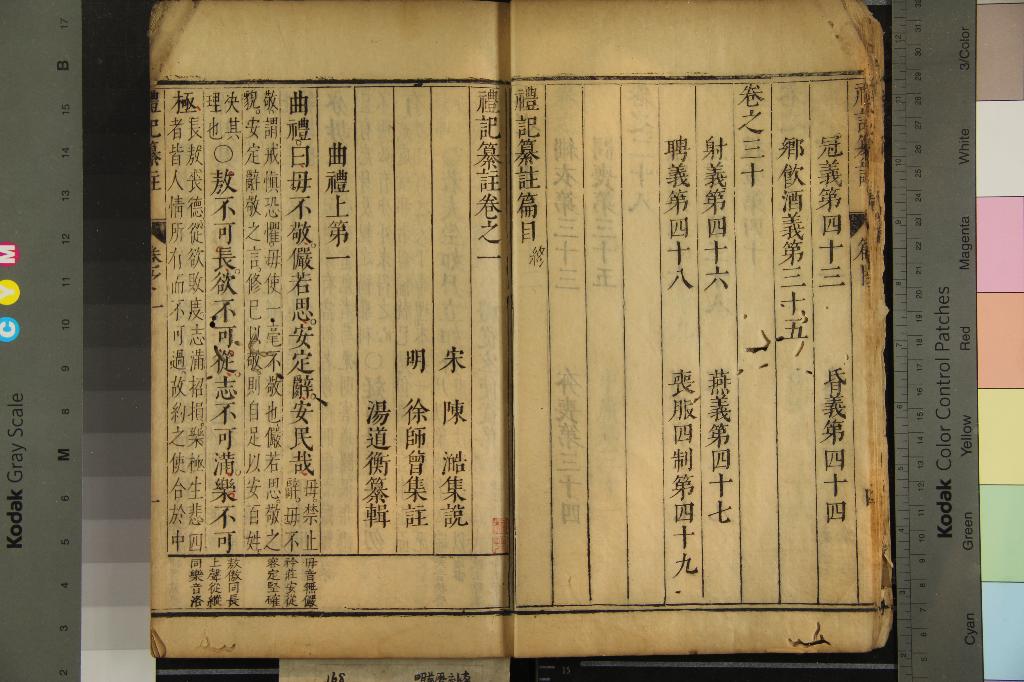 冠義第四十三　昏義第四十四
鄉飲酒義第三十五
卷之三十
射義第四十六　燕義第四十七
聘義第四十八　喪服四制第四十九
禮記纂註篇目終
禮記纂註卷之一
宋　陳　澔集說
明　徐師曾集註
湯道衡纂輯
曲禮上第一
曲禮曰毋不敬儼若思安定辭安民哉毋禁止辭毋不
敬謂戒慎恐懼毋使一毫不敬也儼若思敬之
貌安定辭敬之言修已以敬則自足以安百姓
決其
理也○敖不可長欲不可從志不可滿樂不可
極長敖喪德從欲敗度志滿招損樂極生悲四
者皆人情所有而不可過故約之使合於中
毋音無儼
矜莊安從
容定堅確
敖傲同長
上聲從縱
同樂音洛
禮記纂註　卷之一　一
Kodak Gray Scale
C Y M
17 B 15 14 13 12 11 10 9 8 M 6 5 4 3 2
Kodak Color Control Patches
Cyan Green Yellow Red Magenta White 3/Color
168